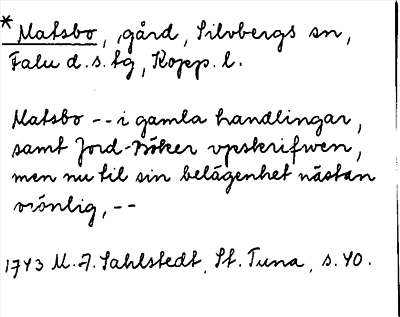 * Matsbo, gård, Silvbergs sn,
Falu d.s. tg, Kopp. l.
Matsbo -- i gamla handlingar,
samt Jord-Böker vpskrifwen,
men nu til sin belägenhet nästan
oviönlig, --
1743 M.A. Sahlstedt, St. Tuna, s. 40.